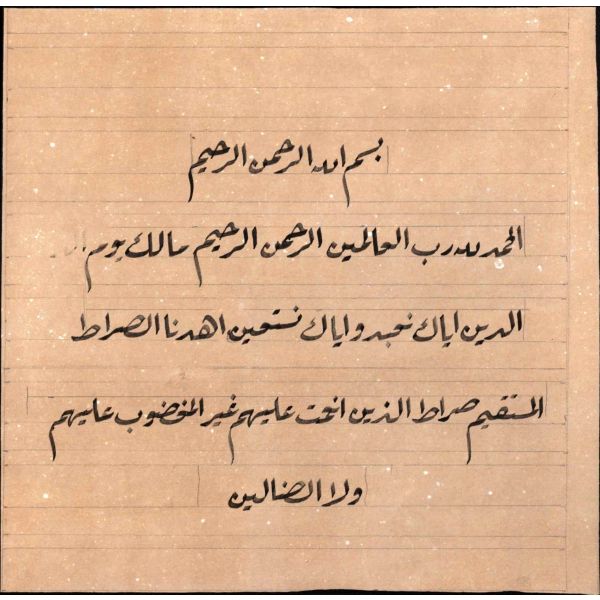 بسم الله الرحمن الرحيم
الحمد لله رب العالمين الرحمن الرحيم مالك يوم
الدين اياك نعبد واياك نستعين اهدنا الصراط
المستقيم صراط الذين انعمت عليهم غير المغضوب عليهم
ولا الضالين